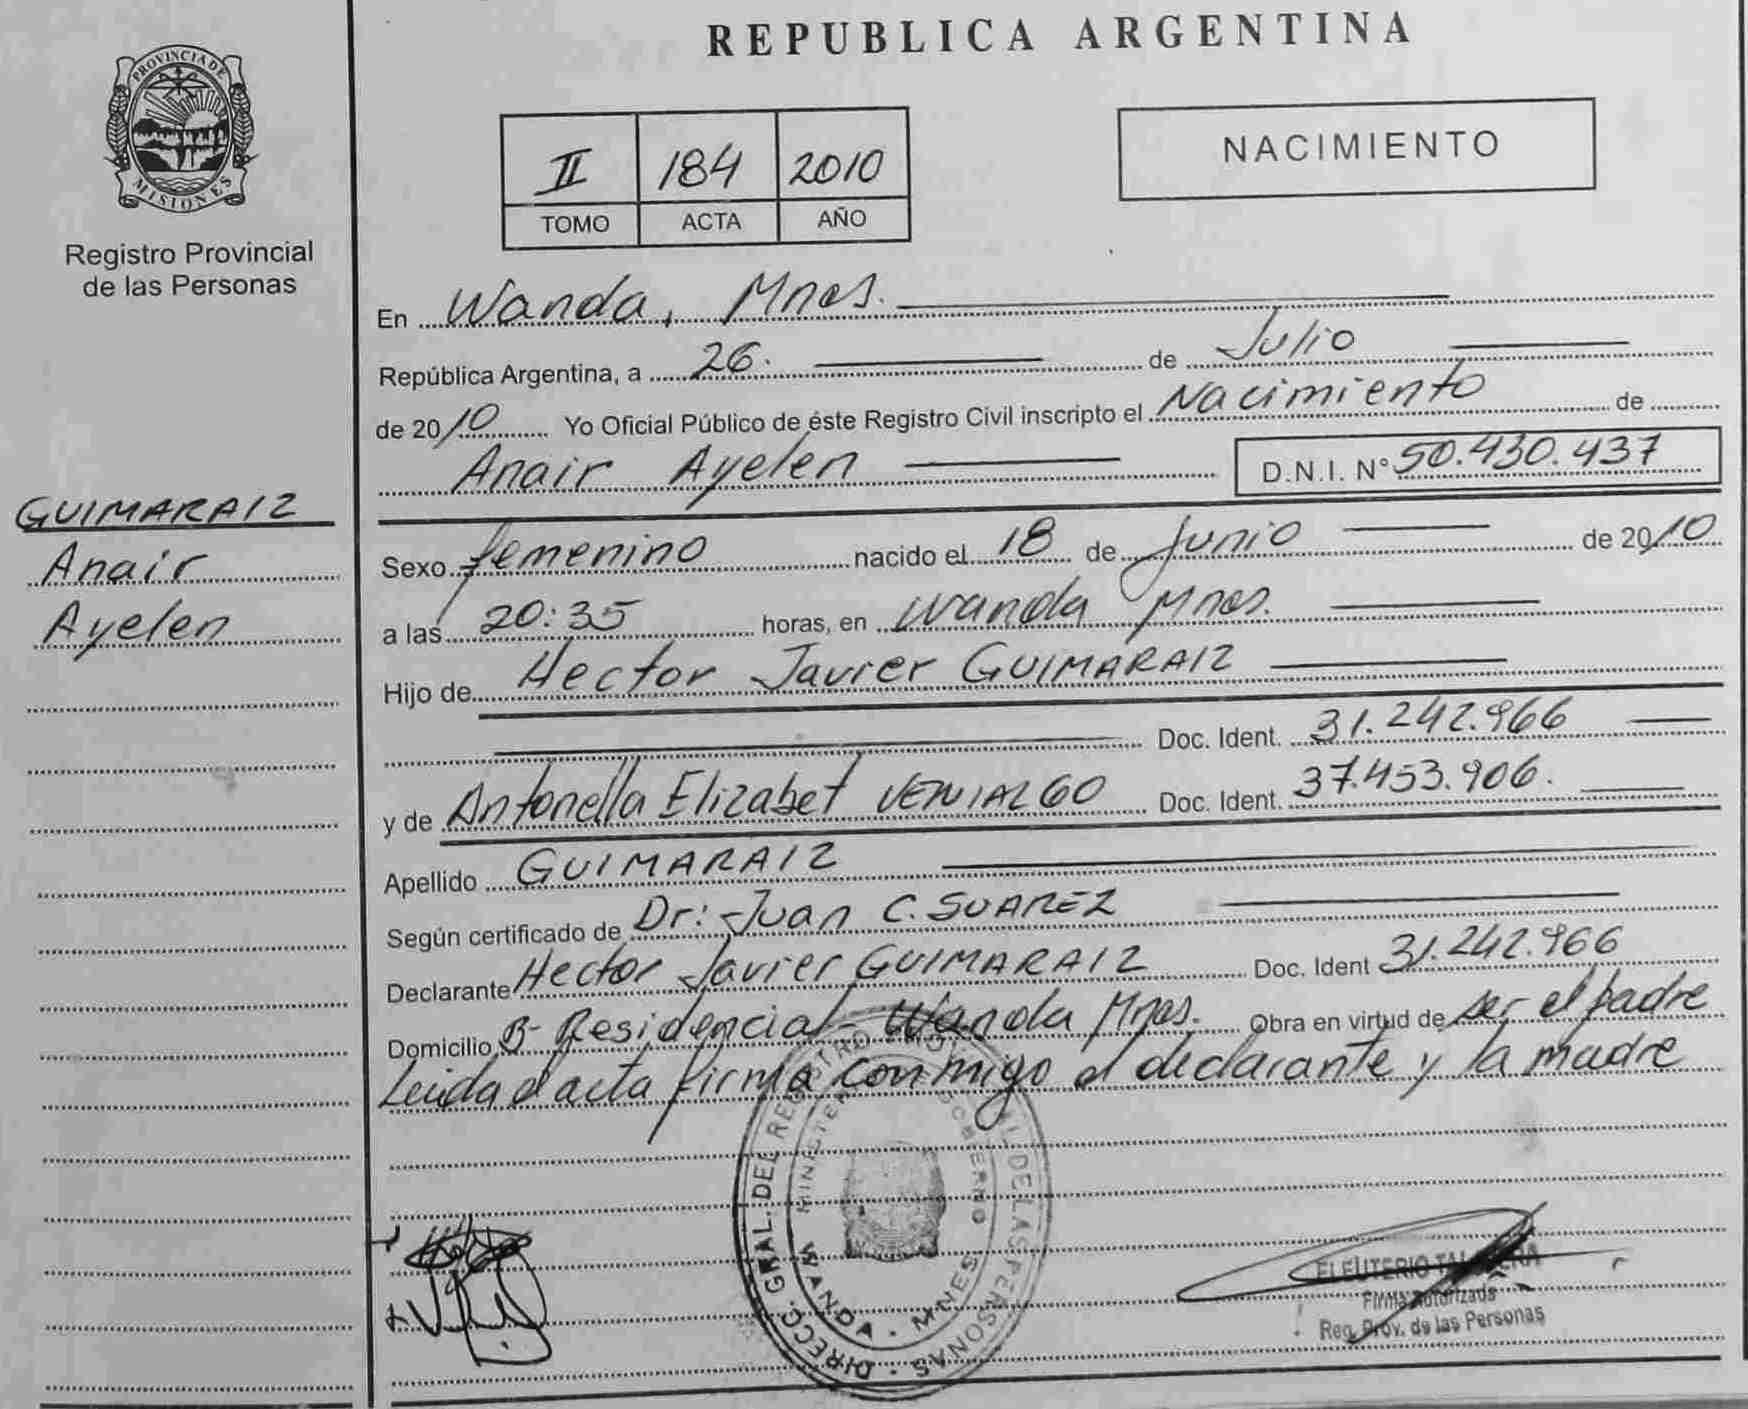 PROVINCIA DE
MISIONES
Registro Provincial
de las Personas
GUIMARAIZ
Anair
Ayelen
REPUBLICA ARGENTINA
II 184 2010
TOMO ACTA AÑO
NACIMIENTO
En Wanda, Mnes.
República Argentina, a 26. de Julio
de 2010 Yo Oficial Público de éste Registro Civil inscripto el Nacimiento de
Anair Ayelen D.N.I. N° 50.430.437
Sexo femenino nacido el 18 de Junio de 2010
a las 20:35 horas, en Wanda Mnes.
Hijo de Hector Javier GUIMARAIZ
Doc. Ident. 31.242.966
y de Antonella Elizabet VENIALGO Doc. Ident. 37.453.906.
Apellido GUIMARAIZ
Según certificado de Dr: Juan C. SUAREZ
Declarante Hector Javier GUIMARAIZ Doc. Ident 31.242.966
Domicilio B- Residencial - Wanda Mnes. Obra en virtud de ser el padre
Leida el acta firma conmigo el declarante y la madre
DIRECC. GRAL. DEL REGISTRO DE LAS PERSONAS
WANDA - MNES
ELEUTERIO
Firma Autorizada
Reg. Prov. de las Personas